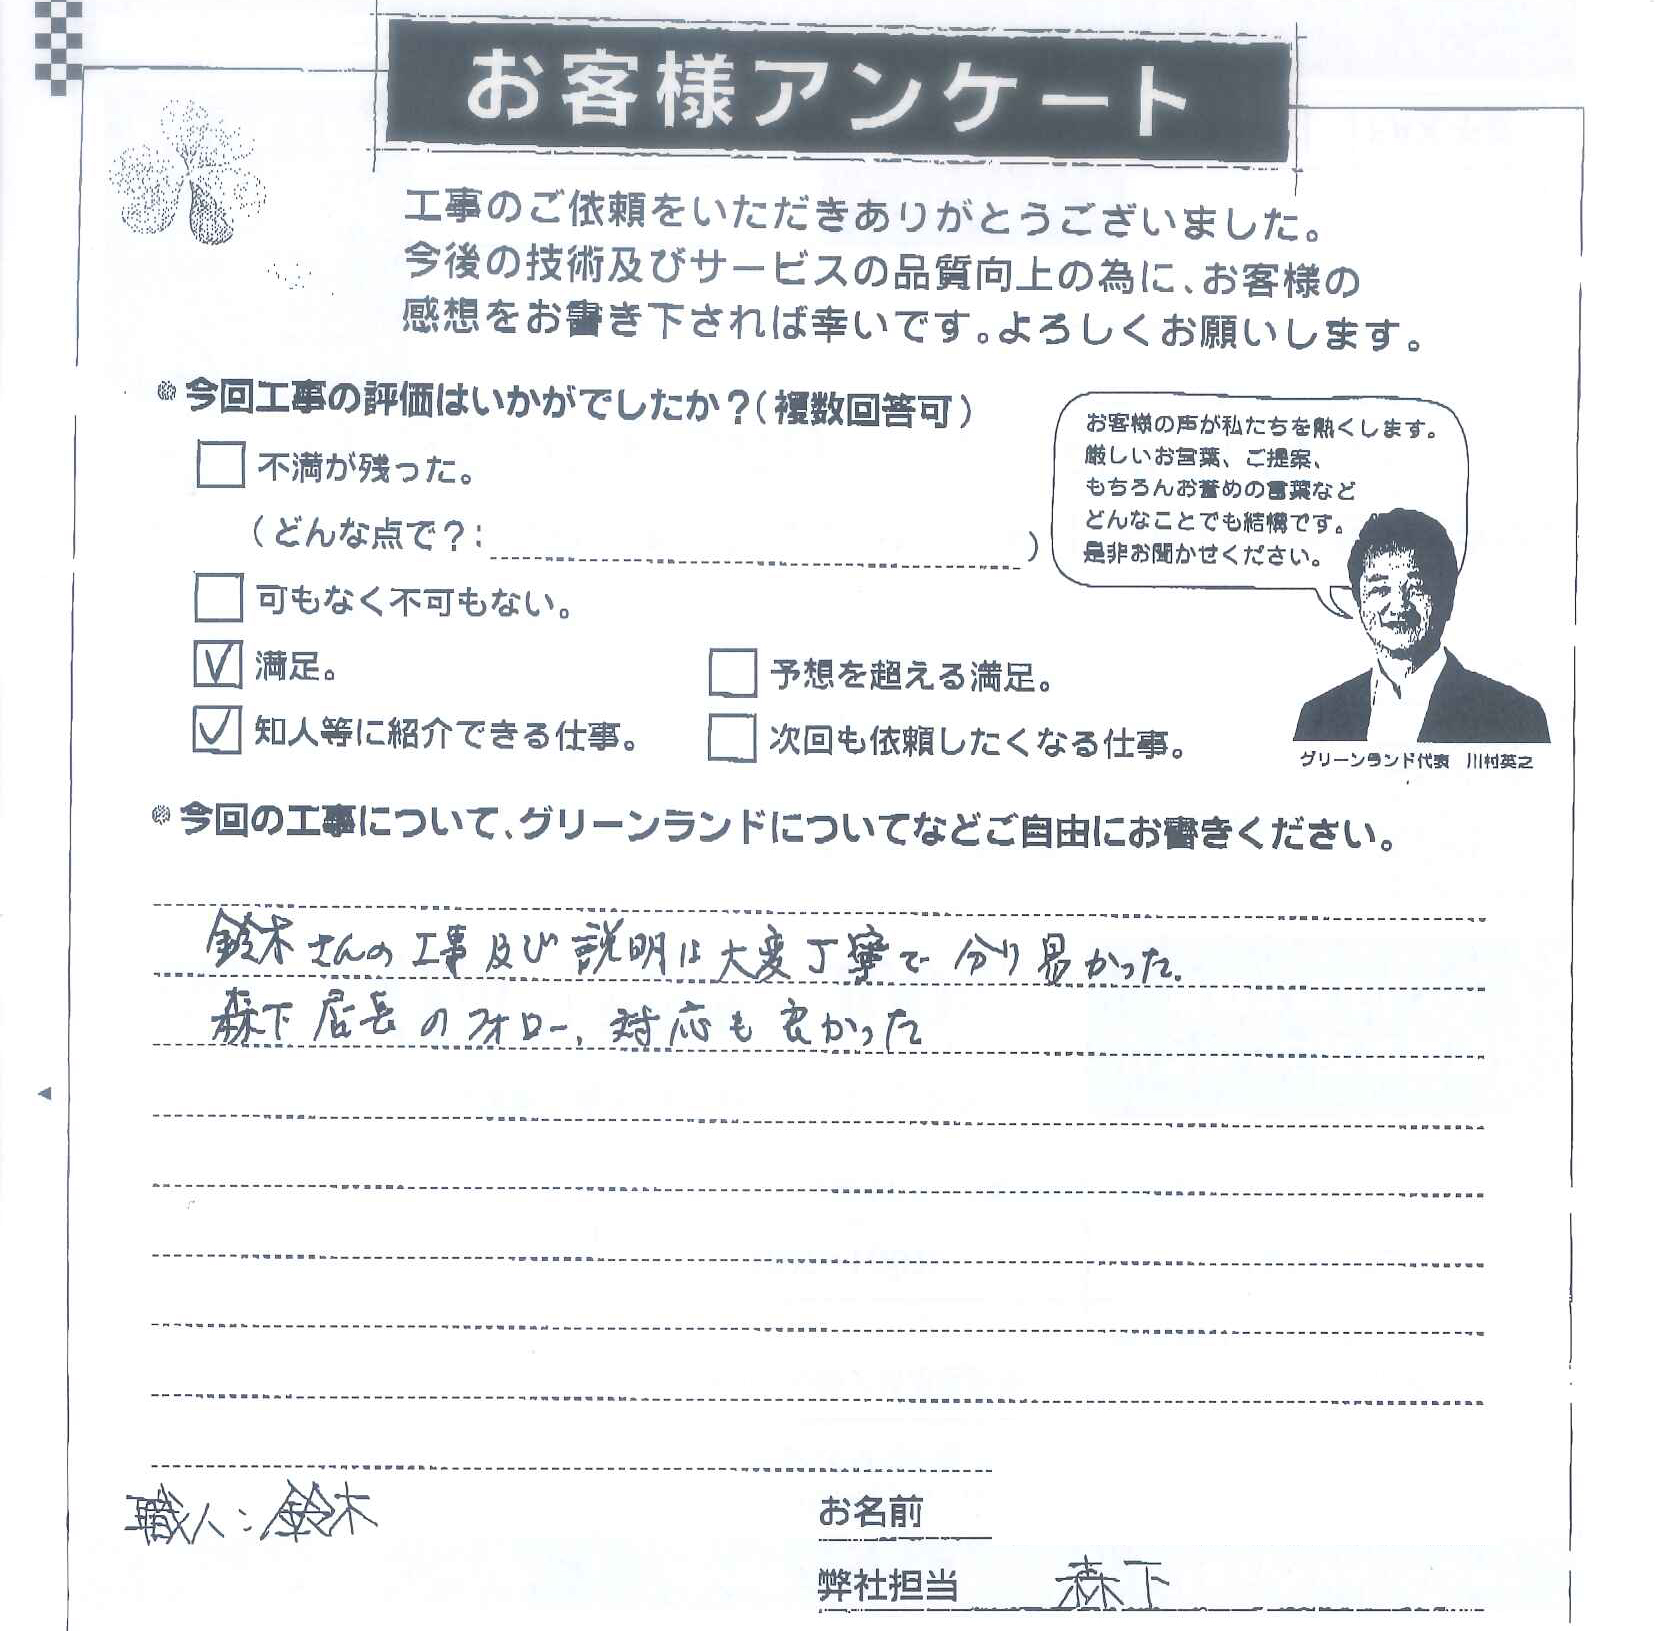 お客様アンケート
工事のご依頼をいただきありがとうございました。
今後の技術及びサービスの品質向上の為に、お客様の
感想をお書き下されば幸いです。よろしくお願いします。
今回工事の評価はいかがでしたか?(複数回答可)
不満が残った。
(どんな点で?: )
可もなく不可もない。
満足。
予想を超える満足。
知人等に紹介できる仕事。
次回も依頼したくなる仕事。
お客様の声が私たちを熱くします。
厳しいお言葉、ご提案、
もちろんお誉めの言葉など
どんなことでも結構です。
是非お聞かせください。
グリーンランド代表 川村英之
今回の工事について、グリーンランドについてなどご自由にお書きください。
鈴木さんの工事及び説明は大変丁寧で分り易かった。
森下店長のフォロー、対応も良かった
職人:鈴木
お名前
弊社担当 森下